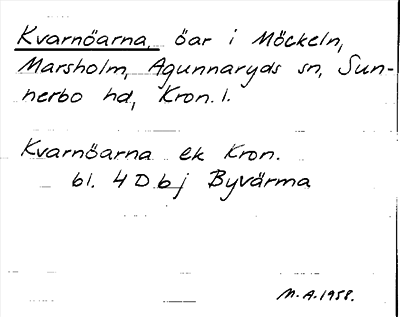 Kvarnöarna, öar i Möckeln,
Marsholm, Agunnaryds sn, Sun-
nerbo hd, Kron. l.
Kvarnöarna ek Kron.
bl. 4 D b j Byvärma
M. A. 1958.